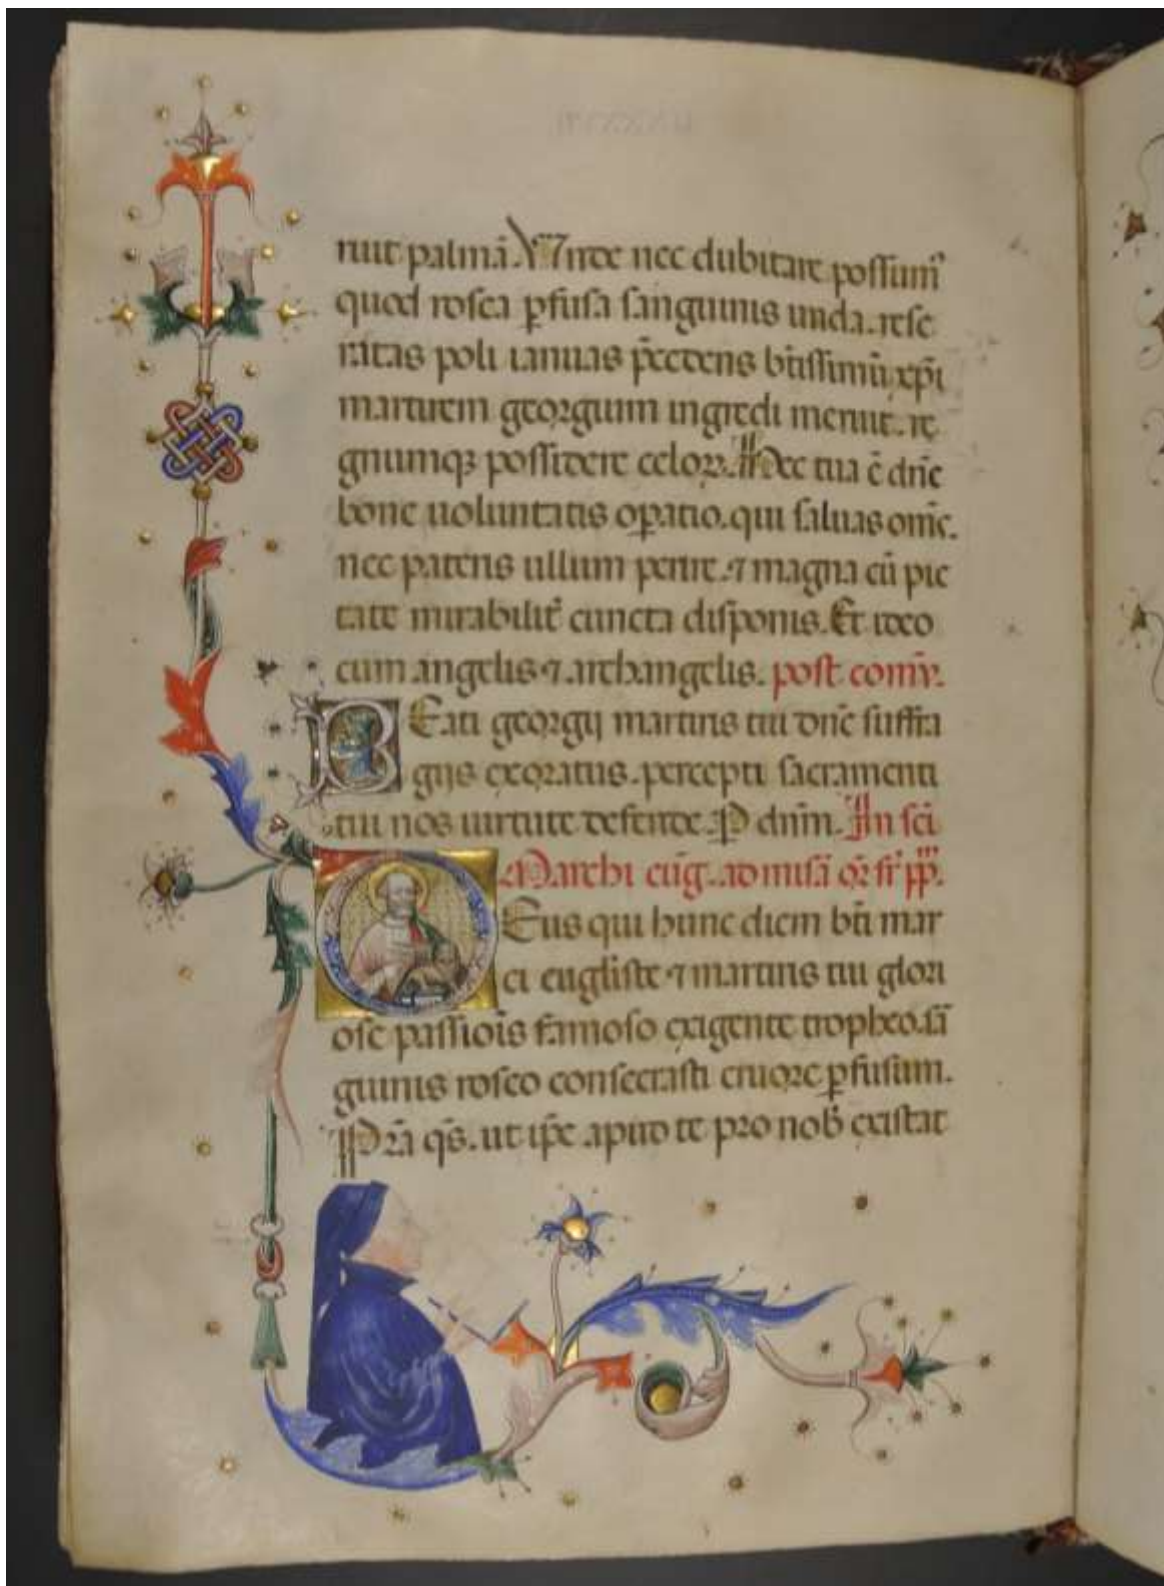 ruit palmā. Vnde nec dubitare possum᷒
quod rosea ꝑfusa sanguinis unda. rese
ratas poli ianuas p̄cedens bt̄issimū xp̄i
martirem georgium ingredi meruit. re
gnumqꝫ possidere celoꝝ. Hec tua ē dn̄e
bone uoluntatis oꝑatio. qui saluas om̄e.
nec pateris ullum perire. ⁊ magna cū pie
tate mirabilit̄ cuncta disponis. Et ideo
cum angelis ⁊ archangelis. post com̄v.
BEati georgij martiris tui dn̄e suffra
gijs exoratus. percepti sacramenti
tui nos uirtute defende. P dnm̄. In sc̄i
Marchi eūg. ad misā or̄ fr̄ pp̄.
DEus qui hunc diem bt̄i mar
ci eūgliste ⁊ martiris tui glori
ose passiōis famoso exigente tropheo. sā
guinis roseo consecrasti cruore ꝑfusum.
Prā qs̄. ut ip̄e apud te pro nob̄ existat